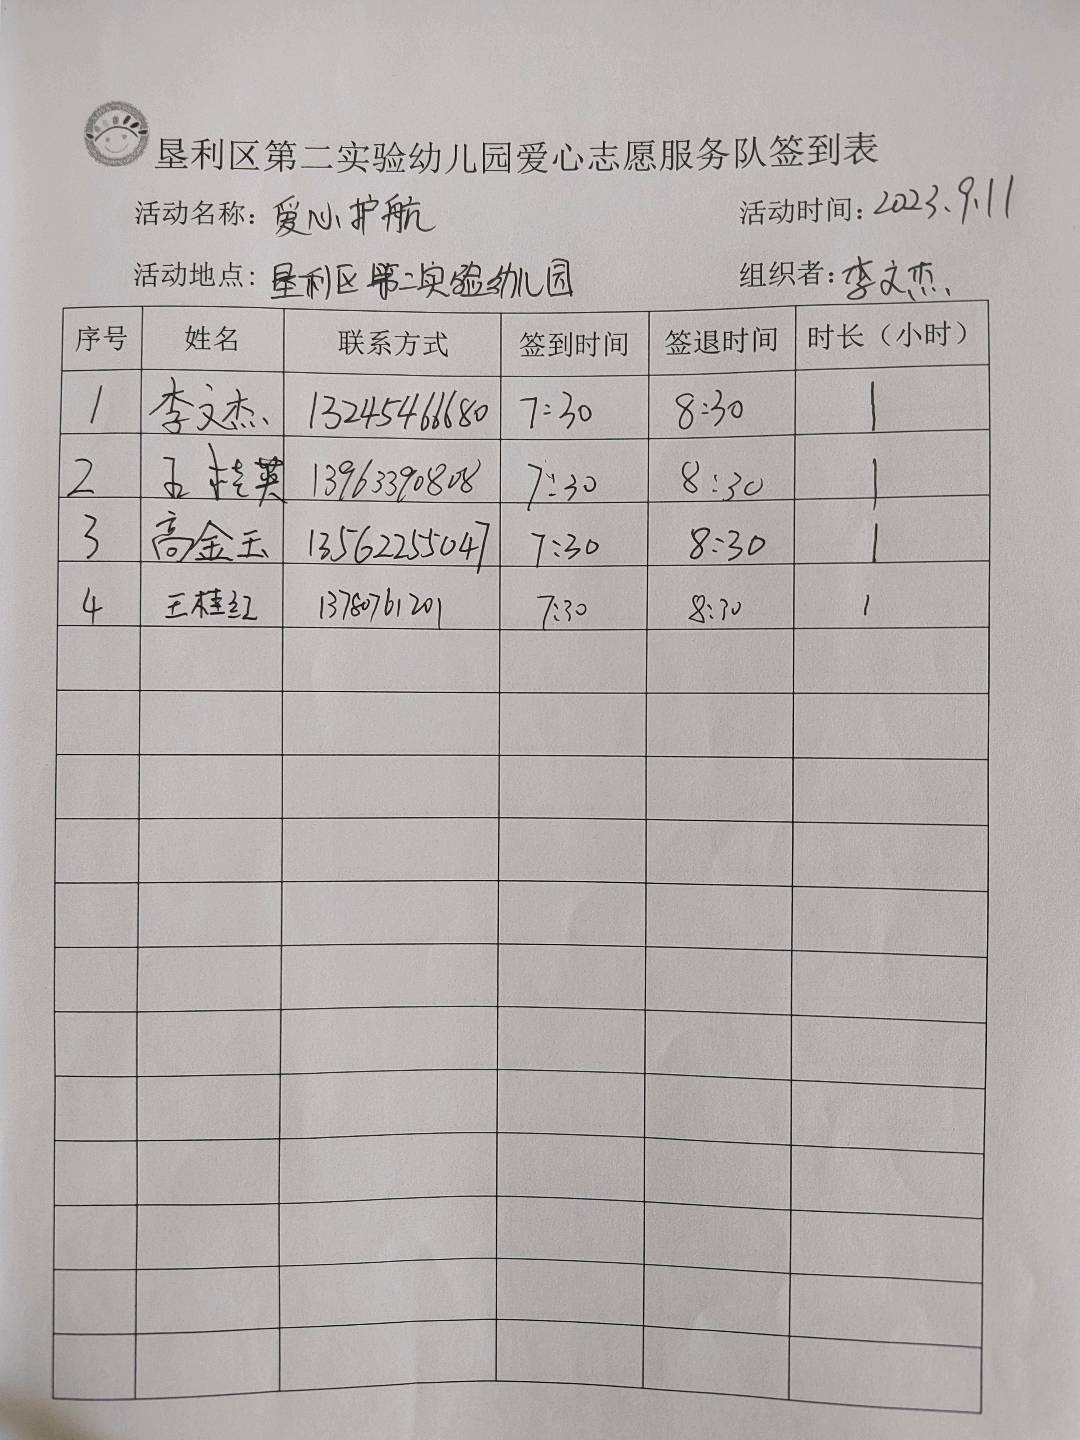 垦利区第二实验幼儿园爱心志愿服务队签到表
活动名称：爱心护航 活动时间：2023.9.11
活动地点：垦利区第二实验幼儿园 组织者：李文杰
序号 姓名 联系方式 签到时间 签退时间 时长（小时）
1 李文杰 13245466680 7:30 8:30 1
2 王桂英 13963390808 7:30 8:30 1
3 高金玉 13562255047 7:30 8:30 1
4 王桂红 13780761201 7:30 8:30 1